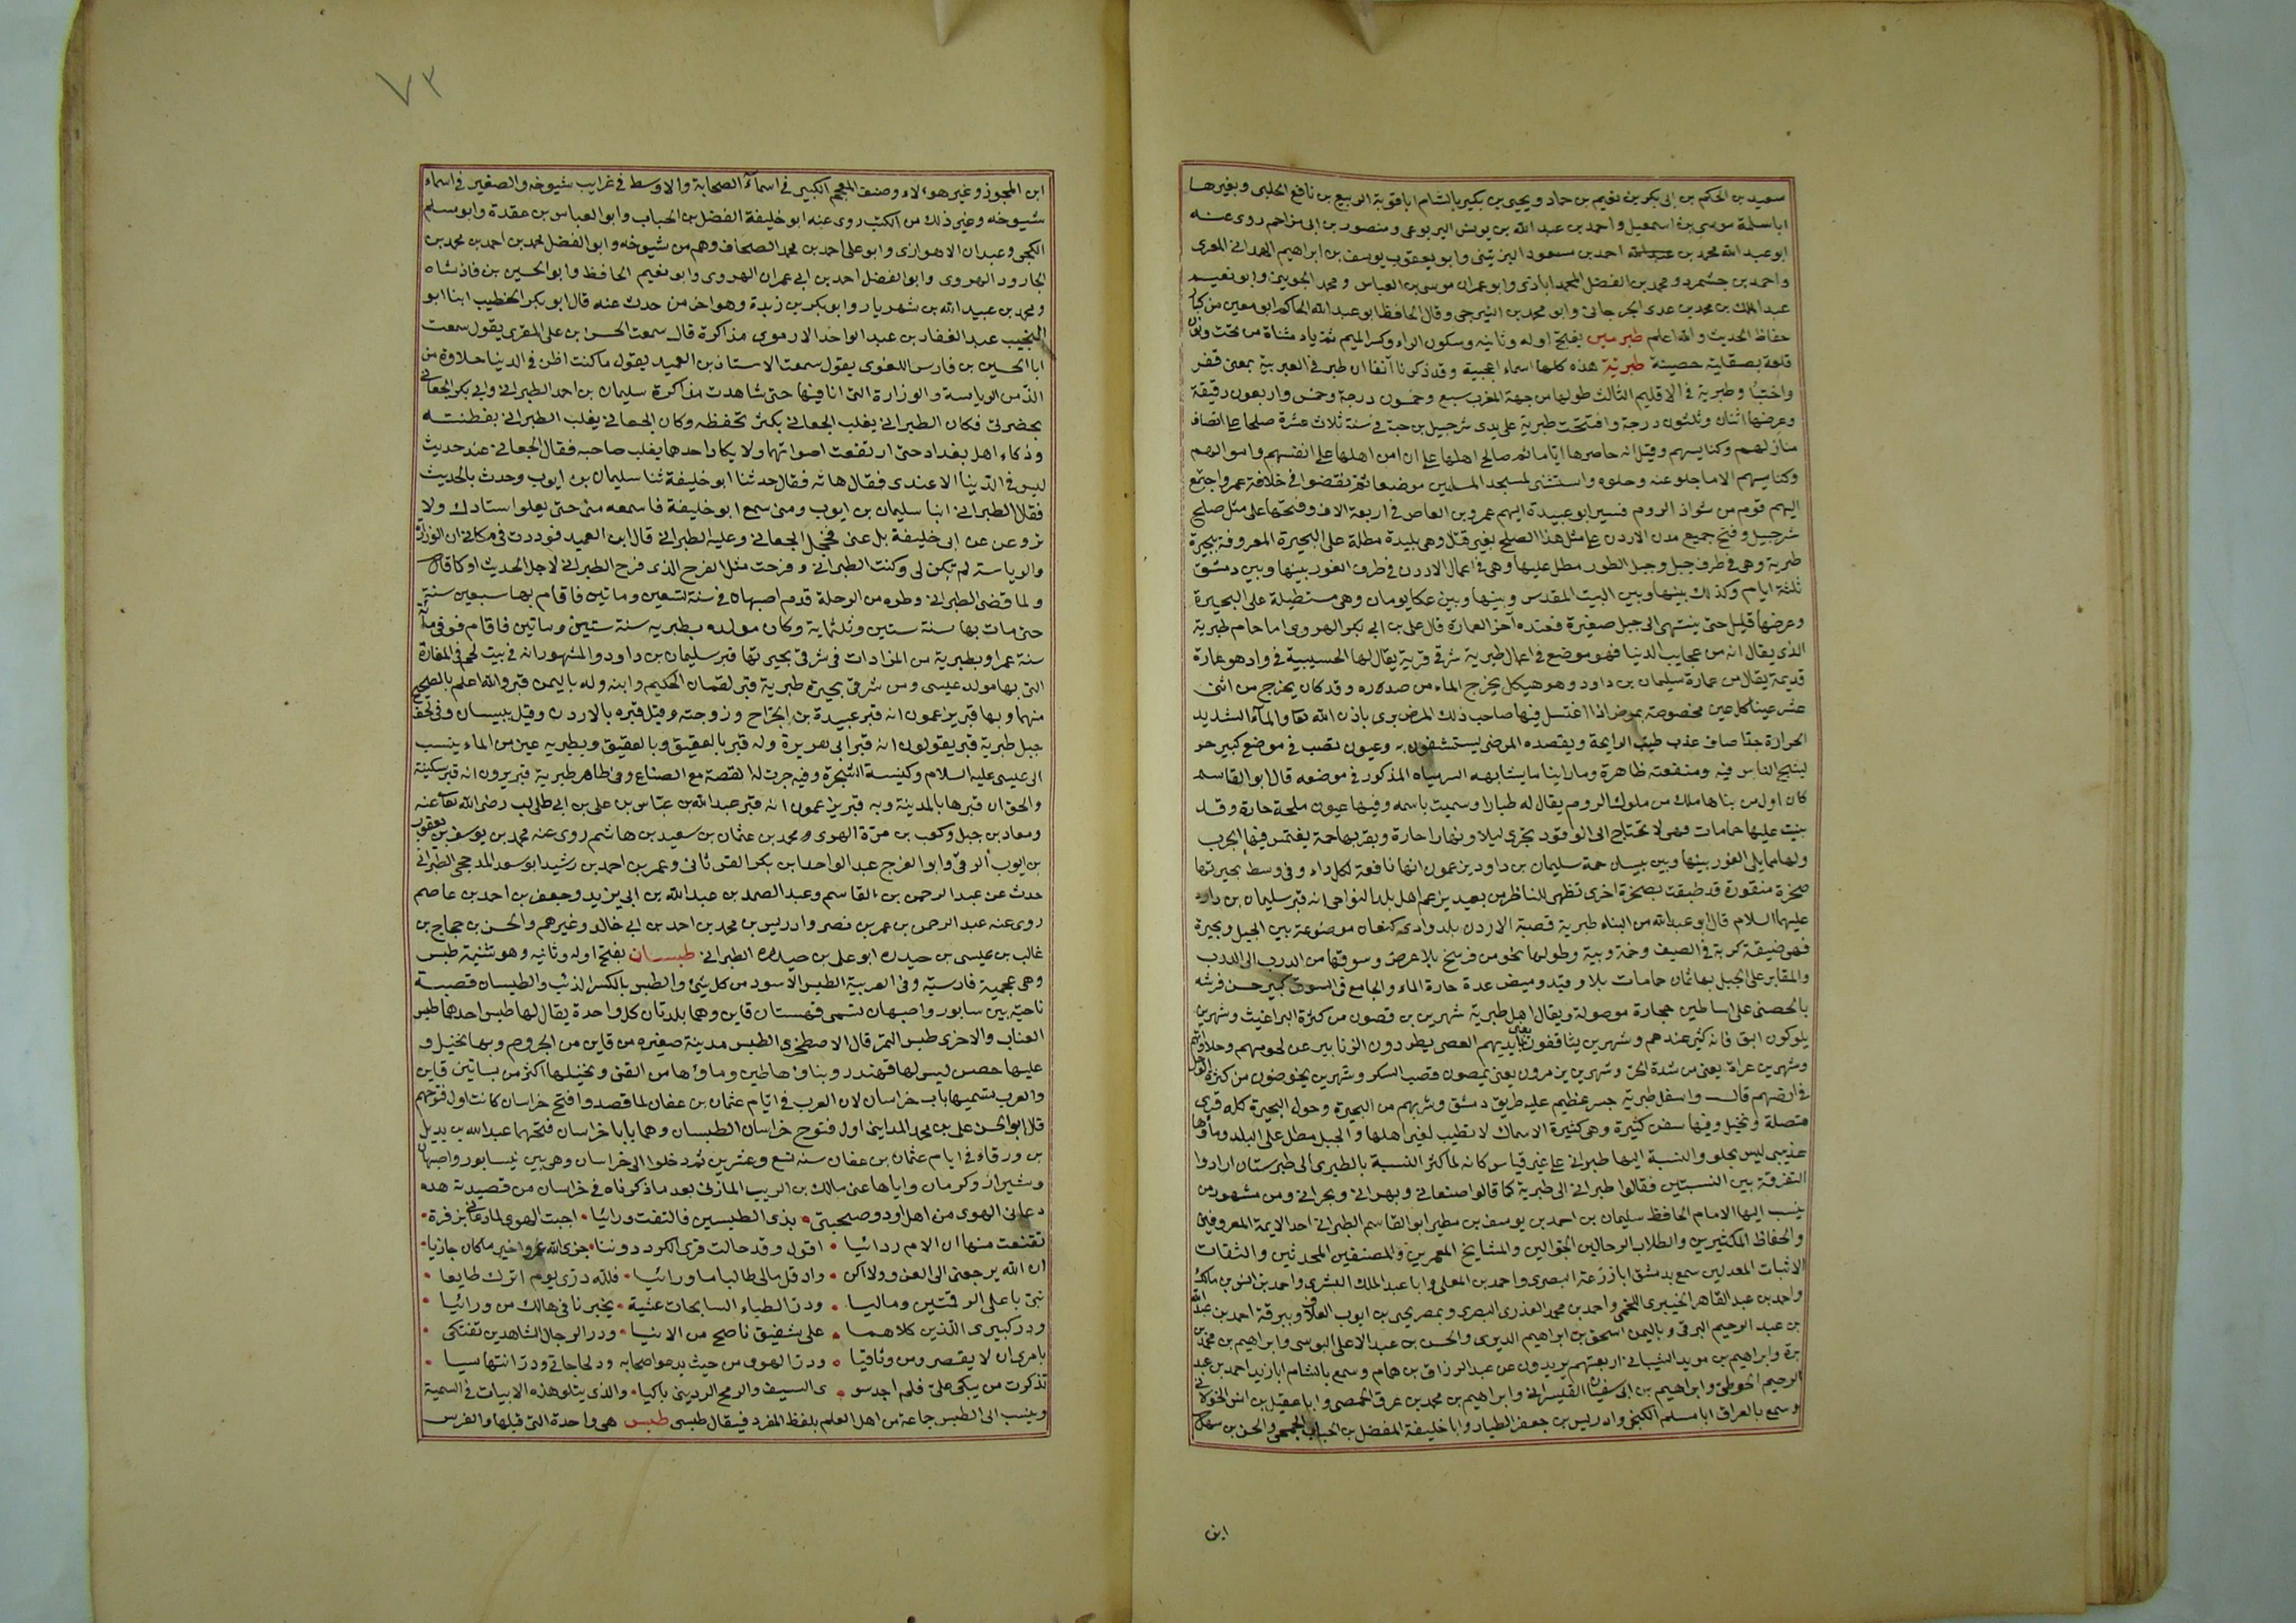 سعيد بن الحكم بن ابى بكر بن نعيم بن حماد ويحيى بن بكير بالشام اباتوبة الربيع بن نافع الحلبى وبغيرها
اباسلمة موسى بن اسمعيل واحمد بن عبد الله بن يونس اليربوعى ومنصور بن ابى مزاحم روى عنه
ابو عبد الله محمد بن احمد بن مسعود البزيتنى وابو يعقوب يوسف بن ابراهيم الهمدانى المعزى
واحمد بن جشمرد ومحمد بن الفضل المحمدابادى وابو عمران موسى بن العباس ومحمد الجوينى وابو نعيم
عبد الملك بن محمد بن عدى الجرجانى وابو محمد بن الشيرجى وقال الحافظ ابو عبد الله الحاكم ابو معين من كبار
حفاظ الحديث والله اعلم طبرمين بفتح اوله وثانيه وسكون الراء وكسر الميم ثم ياء مثناة من تحت ونون
قلعة بصقلية حصينة طبرية هذه كلها اسماء اعجمية وقد ذكرنا آنفا ان طبر فى العربية بمعنى قفز
واختبأ وطبرية فى الاقليم الثالث طولها من جهة المغرب سبع وخمسون درجة وخمس واربعون دقيقة
وعرضها اثنان وثلثون درجة وافتتحت طبرية على يدى شرحبيل بن حسنة فى سنة ثلاث عشرة صلحا على انصاف
منازلهم وكنايسهم وقيل انه حاصرها اياما ثم صالح اهلها على ان امن اهلها على انفسهم واموالهم
وكنايسهم الا ما جلو عنه وخلوه واستثنى لمسجد المسلمين موضعا ثم نقضوا فى خلافة عمر واجتمع
اليهم قوم من شواذ الروم فسير ابو عبيدة اليهم عمرو بن العاص فى اربعة الاف وفتحها على مثل صلح
شرحبيل وفتح جميع مدن الاردن على مثل هذا الصلح بغير قتل وهى بليدة مطلة على البحيرة المعروفة ببحيرة
طبرية وهى فى طرف جبل وجبل الطور مطل عليها وهى فى اعمال الاردن فى طرف الغور بينها وبين دمشق
ثلثة ايام وكذلك بينها وبين البيت المقدس وبينها وبين عكا يومان وهى مستطيلة على البحيرة
وعرضها قليل حتى ينتهى الى جبل صغيرة فعنده آخر العمارة قال على بن ابى بكر الهروى اما حمام طبرية
الذى يقال انه من عجايب الدنيا فهو موضع فى اعمال طبرية شرقى قرية يقال لها الحسيبية فى واد هو عمارة
قديمة يقال من عمارة سليمان بن داود وهو هيكل يخرج الماء من صدره وقد كان يخرج من اثنى
عشر عينا كل عين مخصوصة بمرض اذا اغتسل فيها صاحب ذلك المرض برى باذن الله تعا والمآء الشديد
الحرارة جدا صاف عذب طيب الرايحة ويقصده المرضى يستشفون به وعيون تصب فى موضع كبير حر
ليسبح الناس فيه ومنفعته ظاهرة وما راينا ما يشابهه الا المذكور فى موضعه قال ابو القاسم
كان اول من بناها ملك من ملوك الروم يقال له طبارا وسميت باسمه وفيها عيون ملحة حارة وقد
بنيت عليها حمامات فهى لا تحتاج الى الوقود تجرى ليلا ونهارا حارة وبقربها حمة يغتمس فيها الجرب
ولها مما يلى الغور بينها وبين بيسان حمة سليمان بن داود يزعمون انها نافعة لكل داء وفى وسط بحيرتها
صخرة منقورة قد طبقت بصخرة اخرى تظهر للناظر من بعيد يزعم اهل بلد النواحى انه قبر سليمان بن داود
عليهما السلام قال ابو عبد الله من البناء طبرية قصبة الاردن بلد وادى كنعان موضوعة بين الجبل وبحيرة
فهى ضيقة كربة فى الصيف وخمة وبية وطولها نحو من فرسخ بلا عرض وسوقها من الدرب الى الدرب
والمقابر على الجبل بها ثمان حمامات بلا وقيد وميض عدة حارة الماء والجامع فى السوق كبير حسن فرشه
بالحصى على اساطين حجارة موصولة ويقال اهل طبرية شهرين برقصون من كثرة البراغيث وشهرين
يلوكون البق فانه كثير عندهم وشهرين يثاقفون يعنى بايديهم العصى يطردون الزنابير عن لحومهم وحلاواتهم
وشهرين عراة يعنى من شدة الحر وشهرين يزمرون يعنى يمصون قصب السكر وشهرين يخوضون من كثرة الوحل
فى ارضهم قال واسفل طبرية جسر عظيم عليه طريق دمشق وشربهم من البحيرة وحول البحيرة كله قرى
متصلة ونخيل وفيها سفن كثيرة وهى كثيرة الاسماك لا تطيب لغير اهلها والجبل مطل على البلد وماؤها
عذيبى ليس بحلو والنسبة اليها طبرانى على غير قياس كانه لما كثر النسبة بالطبرى الى طبرستان ارادوا
التفرقة بين النسبتين فقالوا طبرانى الى طبرية كما قالوا صنعانى وبهرانى وبحرانى ومن مشهور من
ينسب اليها الامام الحافظ سليمان بن احمد بن يوسف بن مطير ابو القاسم الطبرانى احد الايمة المعروفين
والحفاظ المكثيرين والطلاب الرحالين الجوالين والمشايخ المعمرين والمصنفين المحدثين والثقات
الاثبات المعدلين سمع بدمشق ابا زرعة البصرى واحمد بن المعلى وابا عبد الملك البشرى واحمد بن انس بن مالك
واحمد بن عبد القاهر الخيبرى اللخمى واحمد بن محمد العذرى البصرى وبمصر يحيى بن ايوب العلاف وببرقة احمد بن عبد الله
بن عبد الرحيم البرقى وباليمن اسحق بن ابراهيم الدبرى والحسن بن عبد الاعلى البوسى وابراهيم بن محمد بن
برة وابراهيم بن مويد الشيبانى اربعتهم يريدون عن عبد الرزاق بن همام وسمع بالشام ابا زيد احمد بن عبد
الرحيم الحوطى وابراهيم بن ابى سفيان القيسرانى وابراهيم بن محمد بن عرق الحمصى وابا عقيل بن انس الخولانى
وسمع بالعراق ابا مسلم الكجى وادريس بن جعفر الطيار وابا خليفة المفضل بن الحباب الجمحى والحسن بن سهل
ابن
٧٣
ابن المجوز وغير هولاء وصنف المعجم الكبير فى اسمآء الصحابة والاوسط فى غرايب شيوخه والصغير فى اسماء
شيوخه وغير ذلك من الكتب روى عنه ابو خليفة الفضل بن الحباب وابو العباس بن عقدة وابو مسلم
الكجى وعبدان الاهوازى وابو على احمد بن محمد الصحاف وهم من شيوخه وابو الفضل محمد بن احمد بن محمد بن
الجارود الهروى وابو الفضل احمد بن ابى عمران الهروى وابو نعيم الحافظ وابو الحسين بن فاذشاه
ومحمد بن عبيد الله بن شهريار وابو بكر بن زيدة وهو اخر من حدث عنه قال ابو بكر الخطيب انبا ابو
النجيب عبد الغفار بن عبد الواحد الارموى مذاكرة قال سمعت الحسن بن على المقرى يقول سمعت
ابا الحسين بن فارس اللغوى يقول سمعت الاستاذ بن العميد يقول ما كنت اظن فى الدنيا حلاوة من
الذ من الرياسة والوزارة التى انا فيها حتى شاهدت مذاكرة سليمان بن احمد الطبرانى وابى بكر الجعانى
بحضرتى فكان الطبرانى يغلب الجعانى بكثر تحفظه وكان الجعانى يغلب الطبرانى بفطنته
وذكاء اهل بغداد حتى ارتفعت اصواتهما ولا يكاد احدهما يغلب صاحبه فقال الجعانى عند حديث
ليس فى الدنيا الا عندى فقال هاته فقال حدثنا ابو خليفة ثنا سليمان بن ايوب وحدث بالحديث
فقال الطبرانى انبا سليمان بن ايوب ومنى سمع ابو خليفة فاسمعه منى حتى يعلو استادك ولا
تروعن عن ابى خليفة بل عنى فخجل الجعانى وعلبه الطبرانى قال ابن العميد فوددت فى مكانى ان الوزارة
والرياسة لم تكن لى وكنت الطبرانى وفرحت مثل الفرح الذى فرح الطبرانى لاجل الحديث او كما قال
ولما قضى الطبرانى وطره من الرحلة قدم اصبهان فى سنة تسعين وماتين فاقام بها سبعين سنة
حتى مات بها سنة ستين وثلثماية وكان مولده بطبريه سنة ستين وماتين فاقام فوفى مأة
سنة عمرا وبطبرية من المزارات فى شرقى بحيرتها قبر سليمان بن داود والمشهور انه فى بيت لحم فى المغارة
التى بها مولد عيسى ومن شرقى بحيرة طبرية قبر لقمان الحكيم وابنه وله باليمن قبر والله اعلم بالصحيح
منهما وبها قبر يزعمون انه قبر عبيدة بن الجراح وزوجته وقيل قبره بالاردن وقيل ببيسان وفى لحف
جبل طبرية قبر يقولون انه قبر ابى هريرة وله قبر بالعقيق وبالعقيق وبطبريه عين من الماء ينسب
الى عيسى عليه السلام وكنيسة الشجرة وفيه جرت له القصة مع الصناع وفى ظاهر طبرية قبر يرون انه قبر سكينة
والحق ان قبرها بالمدينة وبه قبر يزعمون انه قبر عبد الله بن عباس بن على بن ابى طالب رضى الله تعا عنه
ومعاذ بن جبل وكعب بن مرة الهوى ومحمد بن عثمان بن سعيد بن هاشم روى عنه محمد بن يوسف بن يعقوب
بن ايوب الرقى وابو الفرج عبد الواحد بن بكر القرثانى وعمر بن احمد بن رشيد ابو سعد المدحجى الطبرانى
حدث عن عبد الرحمن بن القاسم وعبد الصمد بن عبد الله بن ابى يزيد وجعفر بن احمد بن عاصم
روى عنه عبد الرحمن بن عمر بن نصر وادريس بن محمد بن احمد بن ابى خالد وغيرهم والحسن بن حجاج بن
غالب بن عيسى بن حيدره ابو على بن حيدره الطبرانى طبسان بفتح اوله وثانيه وهو تثنية طبس
وهى عجمية فارسية وفى العربية الطبس الاسود من كل شئ والطبس بالكسر الذئب والطبسان قصبة
ناحية بين سابور واصبهان تسمى قهستان قاين وهما بلدتان كل واحدة يقال لها طبس احدهما طبس
العناب والاخرى طبس التمر قال الاصطخرى الطبس مدينة صغيره من قاين من الجروم وبها نخيل و
عليها حصن ليس لها قهندر وبناؤها طين وماؤها من القنى ونخيلها اكثر من بساتين قاين
والعرب تسميها باب خراسان لان العرب فى ايام عثمان بن عفان لما قصدوا فتح خراسان كانت اول فتوحهم
قال ابو الحسن على بن محمد المداينى اول فتوح خراسان الطبسان وهما بابا خراسان فتحهما عبد الله بن بديل
بن ورقاء فى ايام عثمان بن عفان سنه تسع وعشرين ثم دخلوا الى خراسان وهى بين نيسابور واصبهان
وشيراز وكرمان واياها عنى مالك بن الريب المازنى بعد ما ذكرناه فى خراسان من قصيدته هذه
دعانى الهوى من اهل اود وصحبتى • بذى الطبسين فالتفت ورائيا • اجبت الهوى لما دعانى بزفرة •
تقنعت منها ان الام ردائيا • اقول وقد حالت قرى الكرد دوننا • جزى الله عمروا خير ما كان جازيا •
ان الله يرجعنى الى الغزو ولا اكن • واد قل مالى طالبا ما ورائيا • فلله درى يوم اترك طايعا •
بنى باعلى الرقمتين وماليا • ودر الظباء السابحات عشية • يخبرنا فى هالك من ورائيا •
ودر كبيرى اللذين كلاهما • على شفيق ناصح من الانيا • ودر الرجال الشاهدين تفتكى •
بامرى ان لا يقصر ومن وثاقيا • ودر الهوى من حيث يدعو اصحابه ودر لحاجاتى ودر انتهاسيا •
تذكرت من يبكى على فلم اجد سو • ى السيف والرمح الردينى باكيا • والذى يتلو هذه الابيات فى السمية
وينسب الى الطبس جماعة من اهل العلم بلفظ المفرد فيقال طبسى طبس هى واحدة التى قبلها والفرس